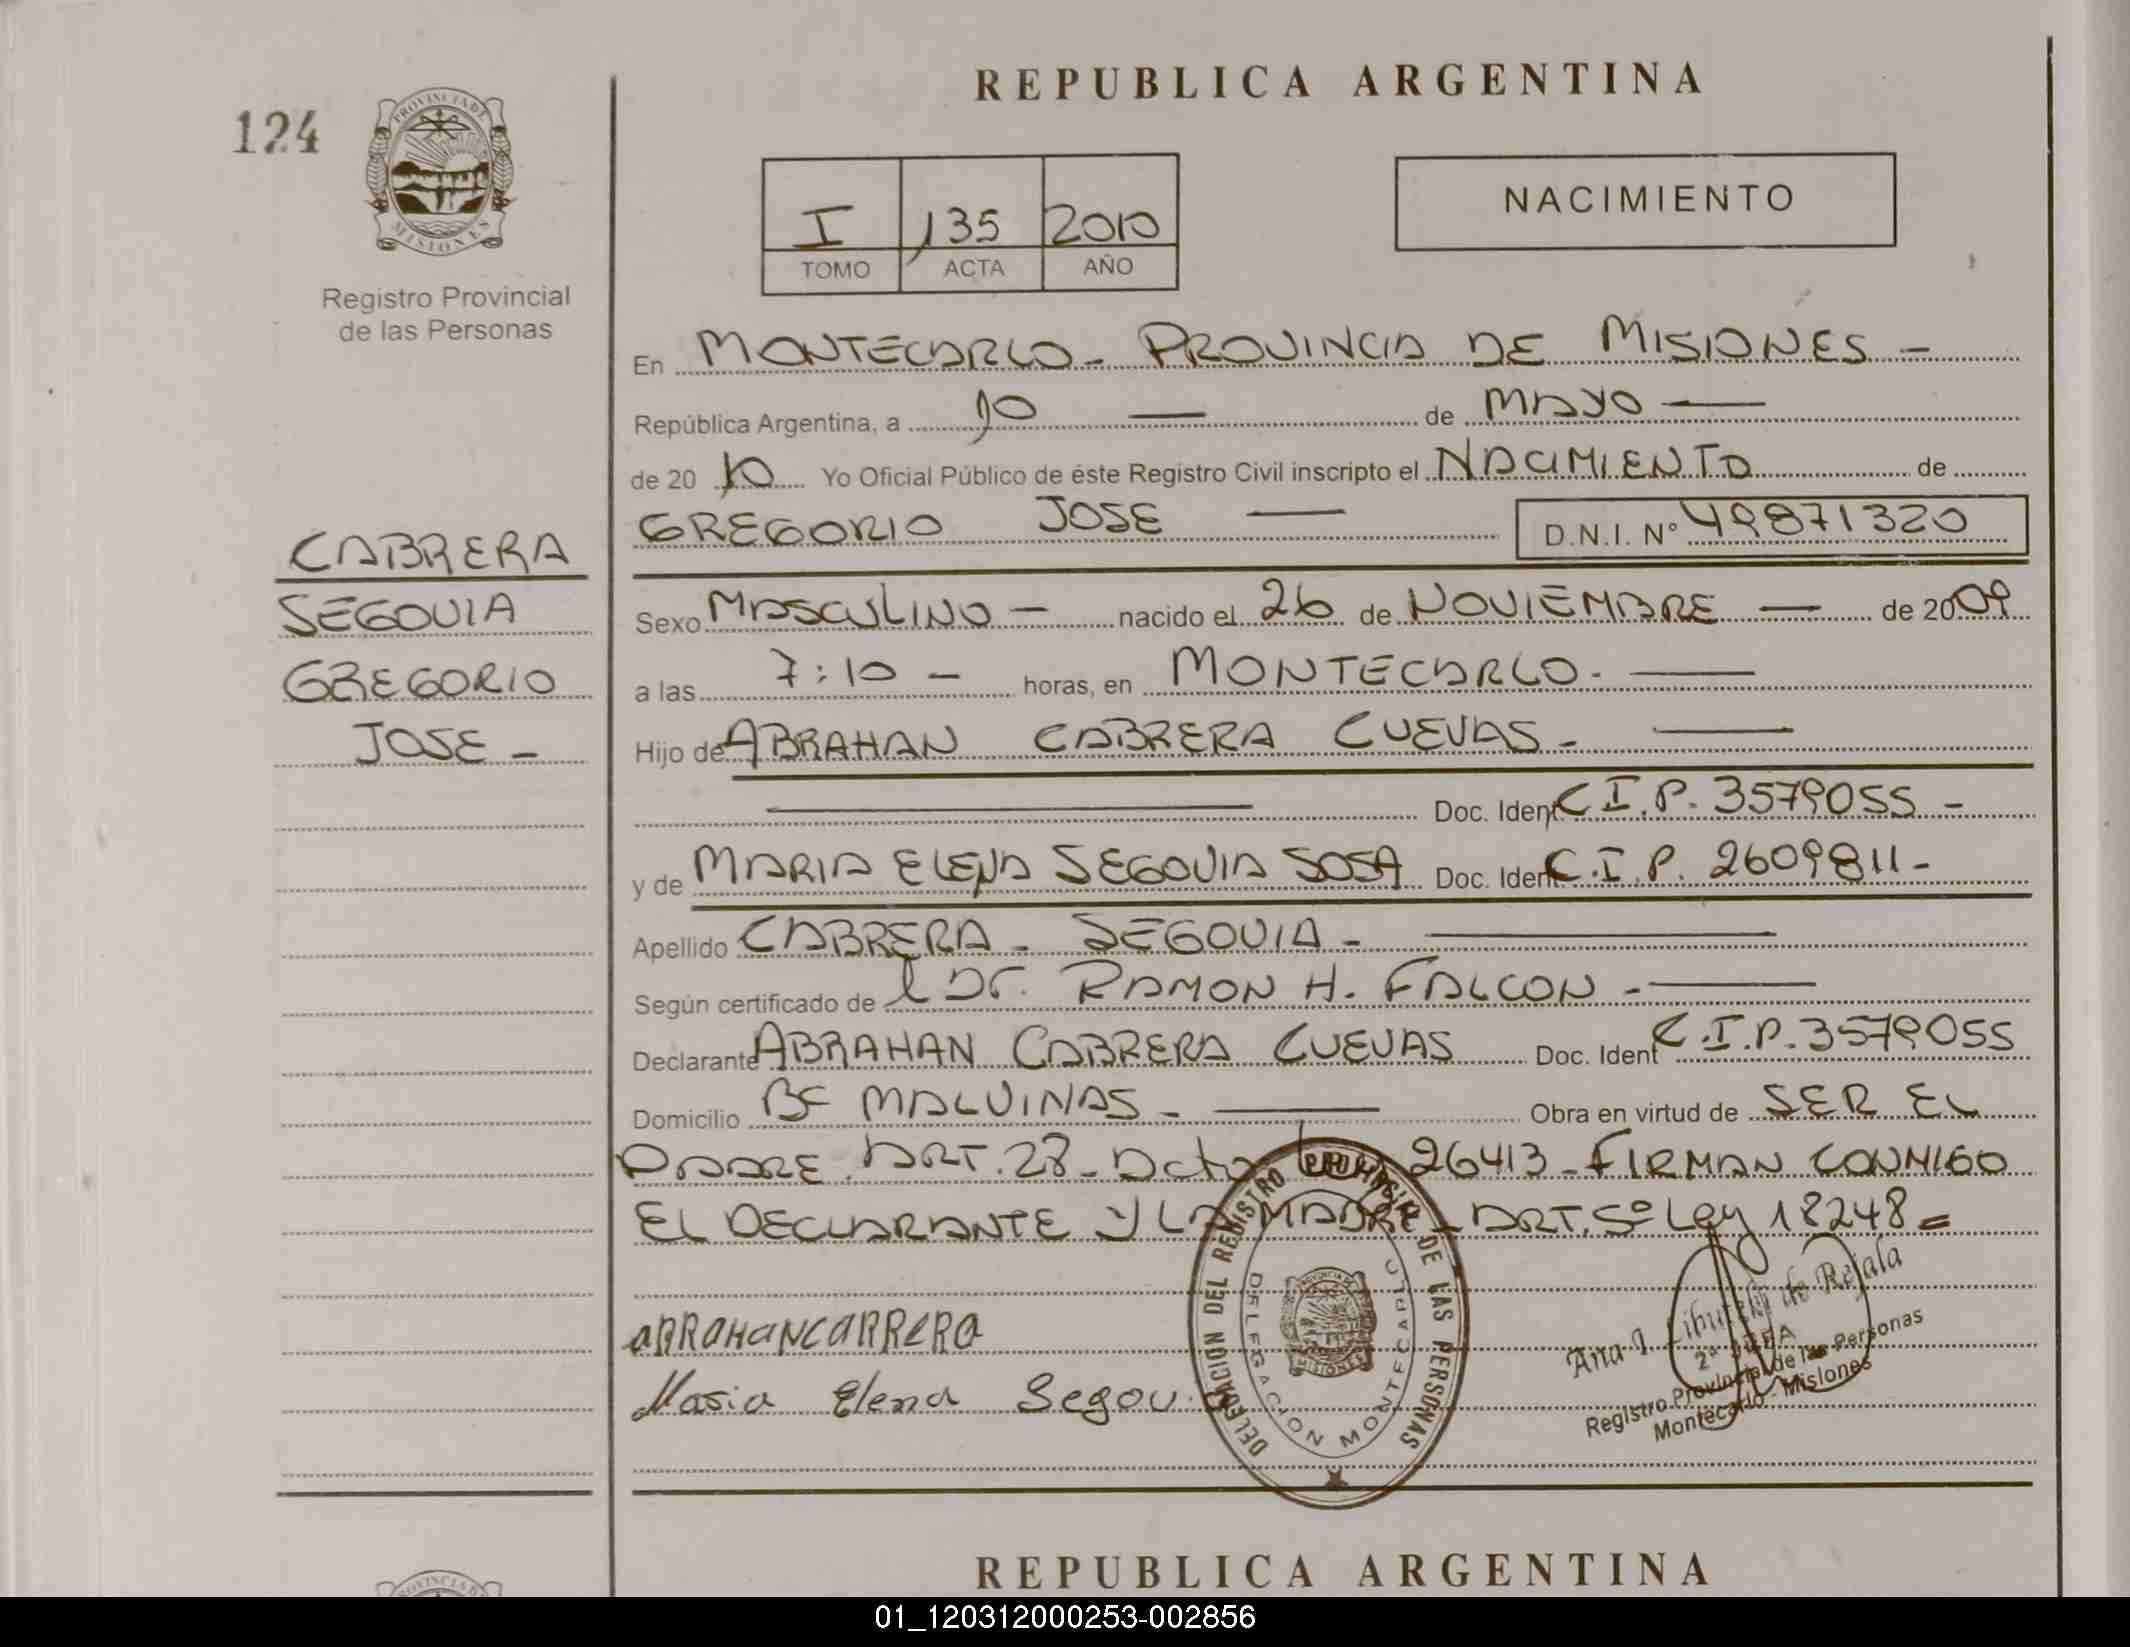 REPUBLICA ARGENTINA
124
PROVINCIA DE
MISIONES
Registro Provincial
de las Personas
I 135 2010
TOMO ACTA AÑO
NACIMIENTO
En MONTECARLO - PROVINCIA DE MISIONES -
República Argentina, a 10 — de MAYO —
de 20 10 Yo Oficial Público de éste Registro Civil inscripto el NACIMIENTO de
GREGORIO JOSE — D.N.I. Nº 49871320
CABRERA
SEGOVIA
GREGORIO
JOSE -
Sexo MASCULINO — nacido el 26 de NOVIEMBRE — de 2009
a las 7:10 - horas, en MONTECARLO. —
Hijo de ABRAHAN CABRERA CUEVAS - —
Doc. Ident C.I.P. 3579055 -
y de MARIA ELENA SEGOVIA SOSA Doc. Ident C.I.P. 2609811 -
Apellido CABRERA - SEGOVIA - —
Según certificado de l Dr. RAMON H. FALCON - —
Declarante ABRAHAN CABRERA CUEVAS Doc. Ident C.I.P. 3579055
Domicilio Bº MALVINAS - — Obra en virtud de SER EL
PADRE. ART. 28 - Dcto Ley 26413 - FIRMAN CONMIGO
EL DECLARANTE Y LA MADRE - ART. 5º Ley 18248 =
ABRAHAN CABRERA
Maria Elena Segovia
DELEGACION DEL REGISTRO PROVINCIAL DE LAS PERSONAS
DELEGACION MONTECARLO
Ana de Rejala
2ª JEFA
Registro Provincial de las Personas
Montecarlo - Misiones
REPUBLICA ARGENTINA
01_120312000253-002856